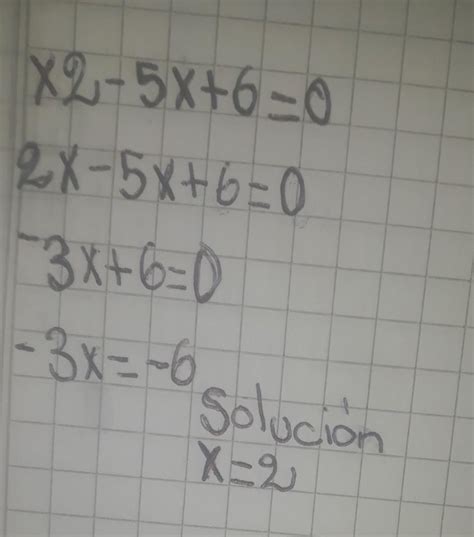 x2-5x+6=0
2x-5x+6=0
-3x+6=0
-3x=-6
Solución
x=2